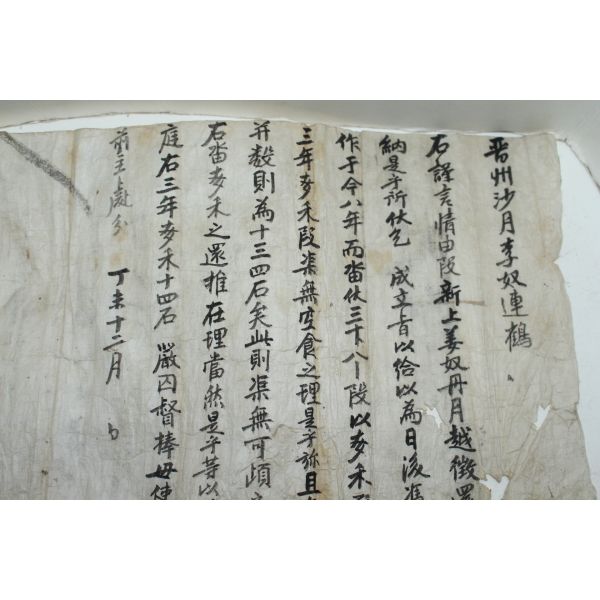 晋州沙月李奴連鶴
右謹言情由段新上姜奴丹月越徵還
納是乎所伏乞 成立旨以給以為日後馮
作于今八年而畓伏三卜八段以麥禾
三年麥禾段渠無空食之理是乎弥且
并數則為十三四石矣此則渠無可頉
右畓麥禾之還推在理當然是乎等以
庭右三年麥禾十四石 嚴囚督捧毋使
前主處分
丁未十二月 日